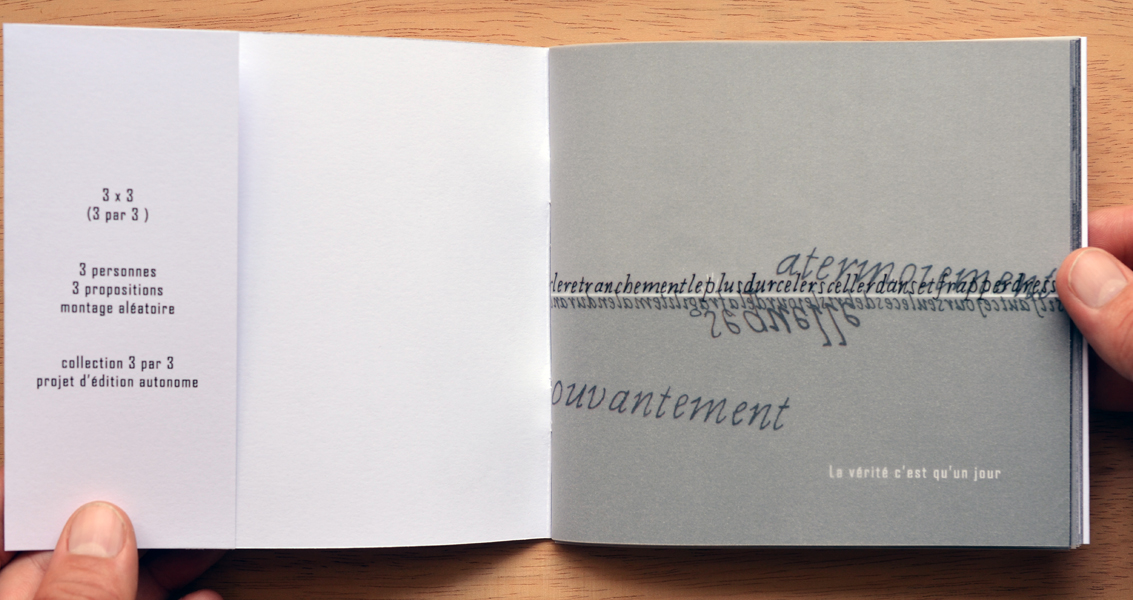 3 x 3
(3 par 3 )
3 personnes
3 propositions
montage aléatoire
collection 3 par 3
projet d'édition autonome
atermoiement
leretranchementleplusdurcelerscellerdansetfrapperdress
sequelle
ouvantement
La vérité c'est qu'un jour